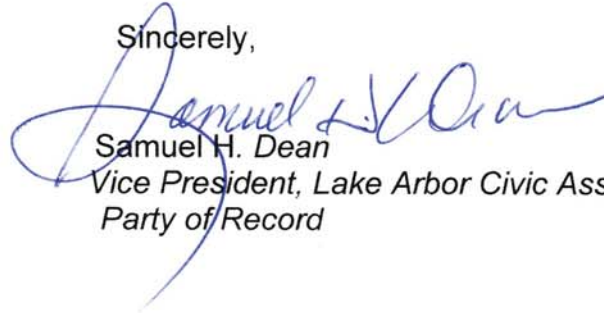 Sincerely,
Samuel H. Dean
Samuel H. Dean
Vice President, Lake Arbor Civic Ass
Party of Record